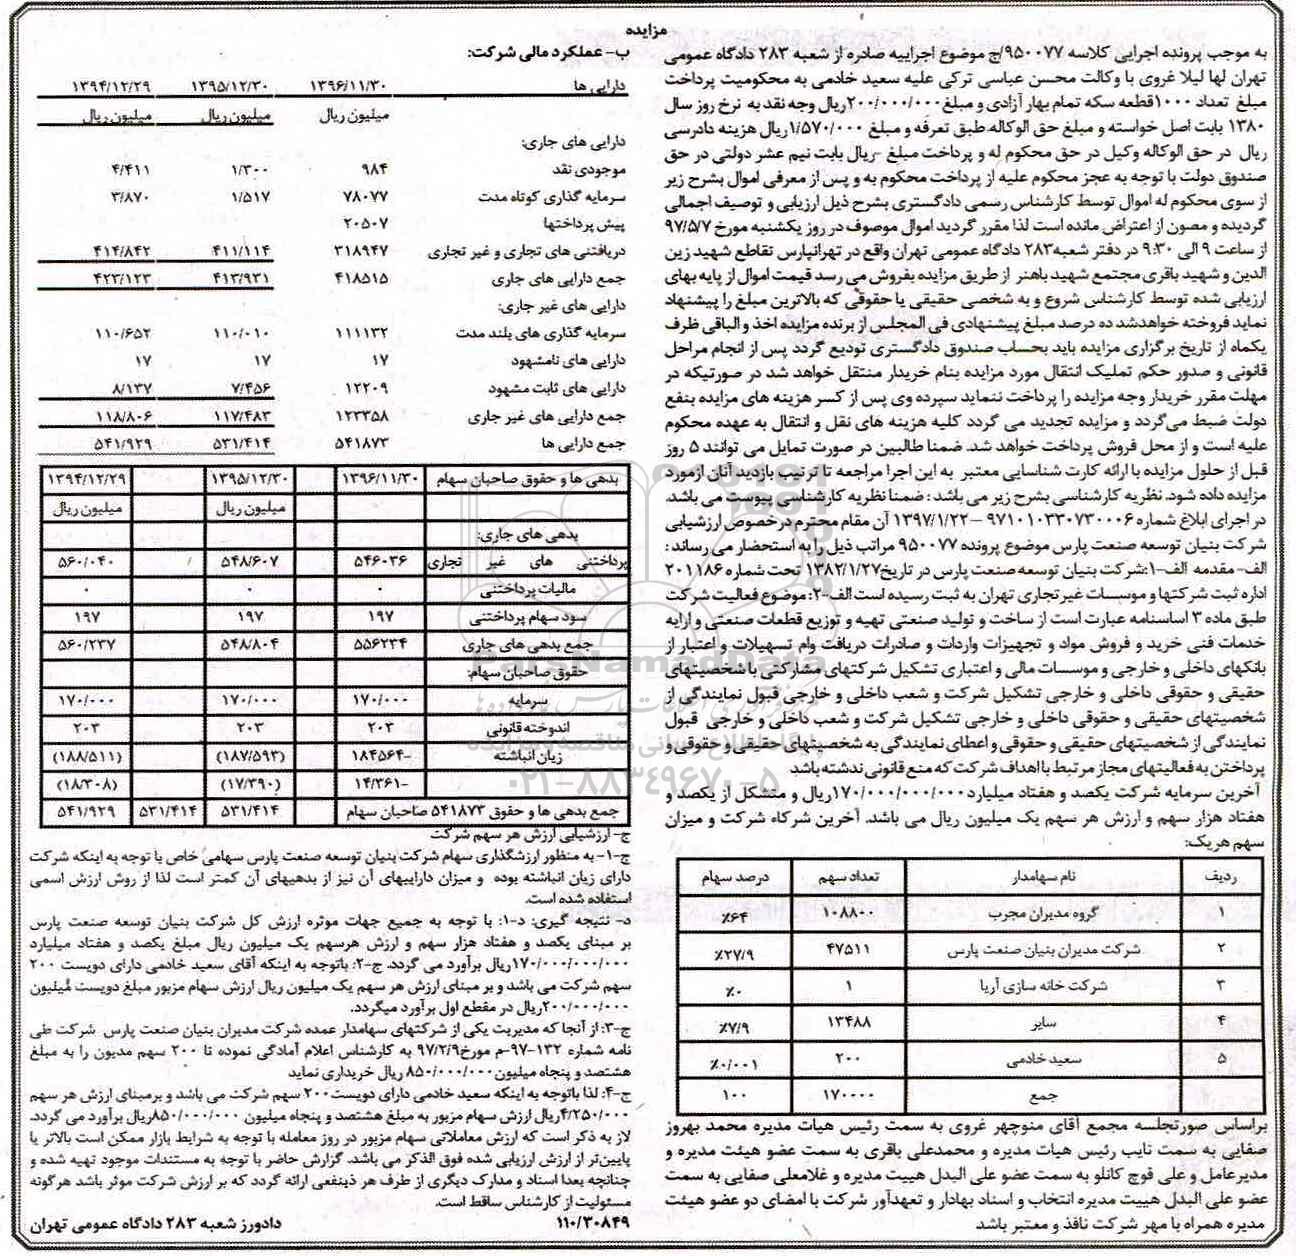 مزایده
به موجب پرونده اجرایی کلاسه ۹۵۰۰۷۷/ج موضوع اجراییه صادره از شعبه ۲۸۳ دادگاه عمومی
تهران لها لیلا غروی با وکالت محسن عباسی ترکی علیه سعید خادمی به محکومیت پرداخت
مبلغ تعداد ۱۰۰۰قطعه سکه تمام بهار آزادی و مبلغ۲۰۰/۰۰۰/۰۰۰ریال وجه نقد به نرخ روز سال
۱۳۸۰ بابت اصل خواسته و مبلغ حق الوکاله طبق تعرفه و مبلغ ۱/۵۷۰/۰۰۰ریال هزینه دادرسی
ریال در حق الوکاله وکیل در حق محکوم له و پرداخت مبلغ -ریال بابت نیم عشر دولتی در حق
صندوق دولت با توجه به عجز محکوم علیه از پرداخت محکوم به و پس از معرفی اموال بشرح زیر
از سوی محکوم له اموال توسط کارشناس رسمی دادگستری بشرح ذیل ارزیابی و توصیف اجمالی
گردیده و مصون از اعتراض مانده است لذا مقرر گردید اموال موصوف در روز یکشنبه مورخ ۹۷/۵/۷
از ساعت ۹ الی ۹:۳۰ در دفتر شعبه۲۸۳ دادگاه عمومی تهران واقع در تهرانپارس تقاطع شهید زین
الدین و شهید باقری مجتمع شهید باهنر از طریق مزایده بفروش می رسد قیمت اموال از پایه بهای
ارزیابی شده توسط کارشناس شروع و به شخصی حقیقی یا حقوقی که بالاترین مبلغ را پیشنهاد
نماید فروخته خواهدشد ده درصد مبلغ پیشنهادی فی المجلس از برنده مزایده اخذ و الباقی ظرف
یکماه از تاریخ برگزاری مزایده باید بحساب صندوق دادگستری تودیع گردد پس از انجام مراحل
قانونی و صدور حکم تملیک انتقال مورد مزایده بنام خریدار منتقل خواهد شد در صورتیکه در
مهلت مقرر خریدار وجه مزایده را پرداخت ننماید سپرده وی پس از کسر هزینه های مزایده بنفع
دولت ضبط می‌گردد و مزایده تجدید می گردد کلیه هزینه های نقل و انتقال به عهده محکوم
علیه است و از محل فروش پرداخت خواهد شد. ضمنا طالبین در صورت تمایل می توانند ۵ روز
قبل از حلول مزایده با ارائه کارت شناسایی معتبر به این اجرا مراجعه تا ترتیب بازدید آنان ازمورد
مزایده داده شود. نظریه کارشناسی بشرح زیر می باشد : ضمنا نظریه کارشناسی پیوست می باشد.
در اجرای ابلاغ شماره ۹۷۱۰۱۰۳۳۰۷۳۰۰۰۶ – ۱۳۹۷/۱/۲۲ آن مقام محترم درخصوص ارزشیابی
شرکت بنیان توسعه صنعت پارس موضوع پرونده ۹۵۰۰۷۷ مراتب ذیل را به استحضار می رساند :
الف- مقدمه الف-۱:شرکت بنیان توسعه صنعت پارس در تاریخ۱۳۸۲/۱/۲۷ تحت شماره ۲۰۱۱۸۶
اداره ثبت شرکتها و موسسات غیرتجاری تهران به ثبت رسیده است الف-۲: موضوع فعالیت شرکت
طبق ماده ۳ اساسنامه عبارت است از ساخت و تولید صنعتی تهیه و توزیع قطعات صنعتی و ارایه
خدمات فنی خرید و فروش مواد و تجهیزات واردات و صادرات دریافت وام تسهیلات و اعتبار از
بانکهای داخلی و خارجی و موسسات مالی و اعتباری تشکیل شرکتهای مشارکتی با شخصیتهای
حقیقی و حقوقی داخلی و خارجی تشکیل شرکت و شعب داخلی و خارجی قبول نمایندگی از
شخصیتهای حقیقی و حقوقی داخلی و خارجی تشکیل شرکت و شعب داخلی و خارجی قبول
نمایندگی از شخصیتهای حقیقی و حقوقی و اعطای نمایندگی به شخصیتهای حقیقی و حقوقی و
پرداختن به فعالیتهای مجاز مرتبط با اهداف شرکت که منع قانونی ندشته باشد
آخرین سرمایه شرکت یکصد و هفتاد میلیارد۱۷۰/۰۰۰/۰۰۰/۰۰۰ریال و متشکل از یکصد و
هفتاد هزار سهم و ارزش هر سهم یک میلیون ریال می باشد. آخرین شرکاء شرکت و میزان
سهم هریک:
ردیف نام سهامدار تعداد سهم درصد سهام
۱ گروه مدیران مجرب ۱۰۸۸۰۰ ۶۴٪
۲ شرکت مدیران بنیان صنعت پارس ۴۷۵۱۱ ۲۷/۹٪
۳ شرکت خانه سازی آریا ۱ ۰٪
۴ سایر ۱۳۴۸۸ ۷/۹٪
۵ سعید خادمی ۲۰۰ ۰/۰۰۱٪
جمع ۱۷۰۰۰۰ ۱۰۰
براساس صورتجلسه مجمع آقای منوچهر غروی به سمت رئیس هیات مدیره محمد بهروز
صفایی به سمت نایب رئیس هیات مدیره و محمدعلی باقری به سمت عضو هیئت مدیره و
مدیرعامل و علی قوچ کانلو به سمت عضو علی البدل هییت مدیره و غلامعلی صفایی به سمت
عضو علی البدل هییت مدیره انتخاب و اسناد بهادار و تعهدآور شرکت با امضای دو عضو هیئت
مدیره همراه با مهر شرکت نافذ و معتبر باشد
ب- عملکرد مالی شرکت:
دارایی ها ۱۳۹۶/۱۱/۳۰ ۱۳۹۵/۱۲/۳۰ ۱۳۹۴/۱۲/۲۹
میلیون ریال میلیون ریال میلیون ریال
دارایی های جاری:
موجودی نقد ۹۸۴ ۱/۳۰۰ ۴/۴۱۱
سرمایه گذاری کوتاه مدت ۷۸۰۷۷ ۱/۵۱۷ ۳/۸۷۰
پیش پرداختها ۲۰۵۰۷
دریافتنی های تجاری و غیر تجاری ۳۱۸۹۴۷ ۴۱۱/۱۱۴ ۴۱۴/۸۴۲
جمع دارایی های جاری ۴۱۸۵۱۵ ۴۱۳/۹۳۱ ۴۲۳/۱۲۳
دارایی های غیر جاری:
سرمایه گذاری های بلند مدت ۱۱۱۱۳۲ ۱۱۰/۰۱۰ ۱۱۰/۶۵۲
دارایی های نامشهود ۱۷ ۱۷ ۱۷
دارایی های ثابت مشهود ۱۲۲۰۹ ۷/۴۵۶ ۸/۱۳۷
جمع دارایی های غیر جاری ۱۲۳۳۵۸ ۱۱۷/۴۸۳ ۱۱۸/۸۰۶
جمع دارایی ها ۵۴۱۸۷۳ ۵۳۱/۴۱۴ ۵۴۱/۹۲۹
بدهی ها و حقوق صاحبان سهام ۱۳۹۶/۱۱/۳۰ ۱۳۹۵/۱۲/۳۰ ۱۳۹۴/۱۲/۲۹
میلیون ریال میلیون ریال
بدهی های جاری:
پرداختنی های غیر تجاری ۵۴۶۰۳۶ ۵۴۸/۶۰۷ ۵۶۰/۰۴۰
مالیات پرداختنی ۰ ۰ ۰
سود سهام پرداختنی ۱۹۷ ۱۹۷ ۱۹۷
جمع بدهی های جاری ۵۵۶۲۳۴ ۵۴۸/۸۰۴ ۵۶۰/۲۳۷
حقوق صاحبان سهام:
سرمایه ۱۷۰/۰۰۰ ۱۷۰/۰۰۰ ۱۷۰/۰۰۰
اندوخته قانونی ۲۰۳ ۲۰۳ ۲۰۳
زیان انباشته -۱۸۴۵۶۴ (۱۸۷/۵۹۳) (۱۸۸/۵۱۱)
-۱۴/۳۶۱ (۱۷/۳۹۰) (۱۸/۳۰۸)
جمع بدهی ها و حقوق ۵۴۱۸۷۳ صاحبان سهام ۵۳۱/۴۱۴ ۵۳۱/۴۱۴ ۵۴۱/۹۲۹
ج- ارزشیابی ارزش هر سهم شرکت
ج-۱- به منظور ارزشگذاری سهام شرکت بنیان توسعه صنعت پارس سهامی خاص با توجه به اینکه شرکت
دارای زیان انباشته بوده و میزان داراییهای آن نیز از بدهیهای آن کمتر است لذا از روش ارزش اسمی
استفاده شده است.
د- نتیجه گیری: د-۱: با توجه به جمیع جهات موثره ارزش کل شرکت بنیان توسعه صنعت پارس
بر مبنای یکصد و هفتاد هزار سهم و ارزش هرسهم یک میلیون ریال مبلغ یکصد و هفتاد میلیارد
۱۷۰/۰۰۰/۰۰۰/۰۰۰ریال برآورد می گردد. ج-۲: باتوجه به اینکه آقای سعید خادمی دارای دویست ۲۰۰
سهم شرکت می باشد و بر مبنای ارزش هر سهم یک میلیون ریال ارزش سهام مزبور مبلغ دویست میلیون
۲۰۰/۰۰۰/۰۰۰ریال در مقطع اول برآورد میگردد.
ج-۳: از آنجا که مدیریت یکی از شرکتهای سهامدار عمده شرکت مدیران بنیان صنعت پارس شرکت طی
نامه شماره ۱۳۲-۹۷-م مورخ۹۷/۲/۹ به کارشناس اعلام آمادگی نموده تا ۲۰۰ سهم مدیون را به مبلغ
هشتصد و پنجاه میلیون۸۵۰/۰۰۰/۰۰۰ ریال خریداری نماید
ج-۴: لذا باتوجه به اینکه سعید خادمی دارای دویست۲۰۰ سهم شرکت می باشد و برمبنای ارزش هر سهم
۴/۲۵۰/۰۰۰ریال ارزش سهام مزبور به مبلغ هشتصد و پنجاه میلیون ۸۵۰/۰۰۰/۰۰۰ریال برآورد می گردد.
لاز به ذکر است که ارزش معاملاتی سهام مزبور در روز معامله با توجه به شرایط بازار ممکن است بالاتر یا
پایین‌تر از ارزش ارزیابی شده فوق الذکر می باشد. گزارش حاضر با توجه به مستندات موجود تهیه شده و
چنانچه بعدا اسناد و مدارک دیگری از طرف هر ذینفعی ارائه گردد که بر ارزش شرکت موثر باشد هرگونه
مسئولیت از کارشناس ساقط است.
۱۱۰/۳۰۸۴۹ دادورز شعبه ۲۸۳ دادگاه عمومی تهران
ParsNamadData
۰۲۱-۸۸۳۴۹۶۷۰-۵